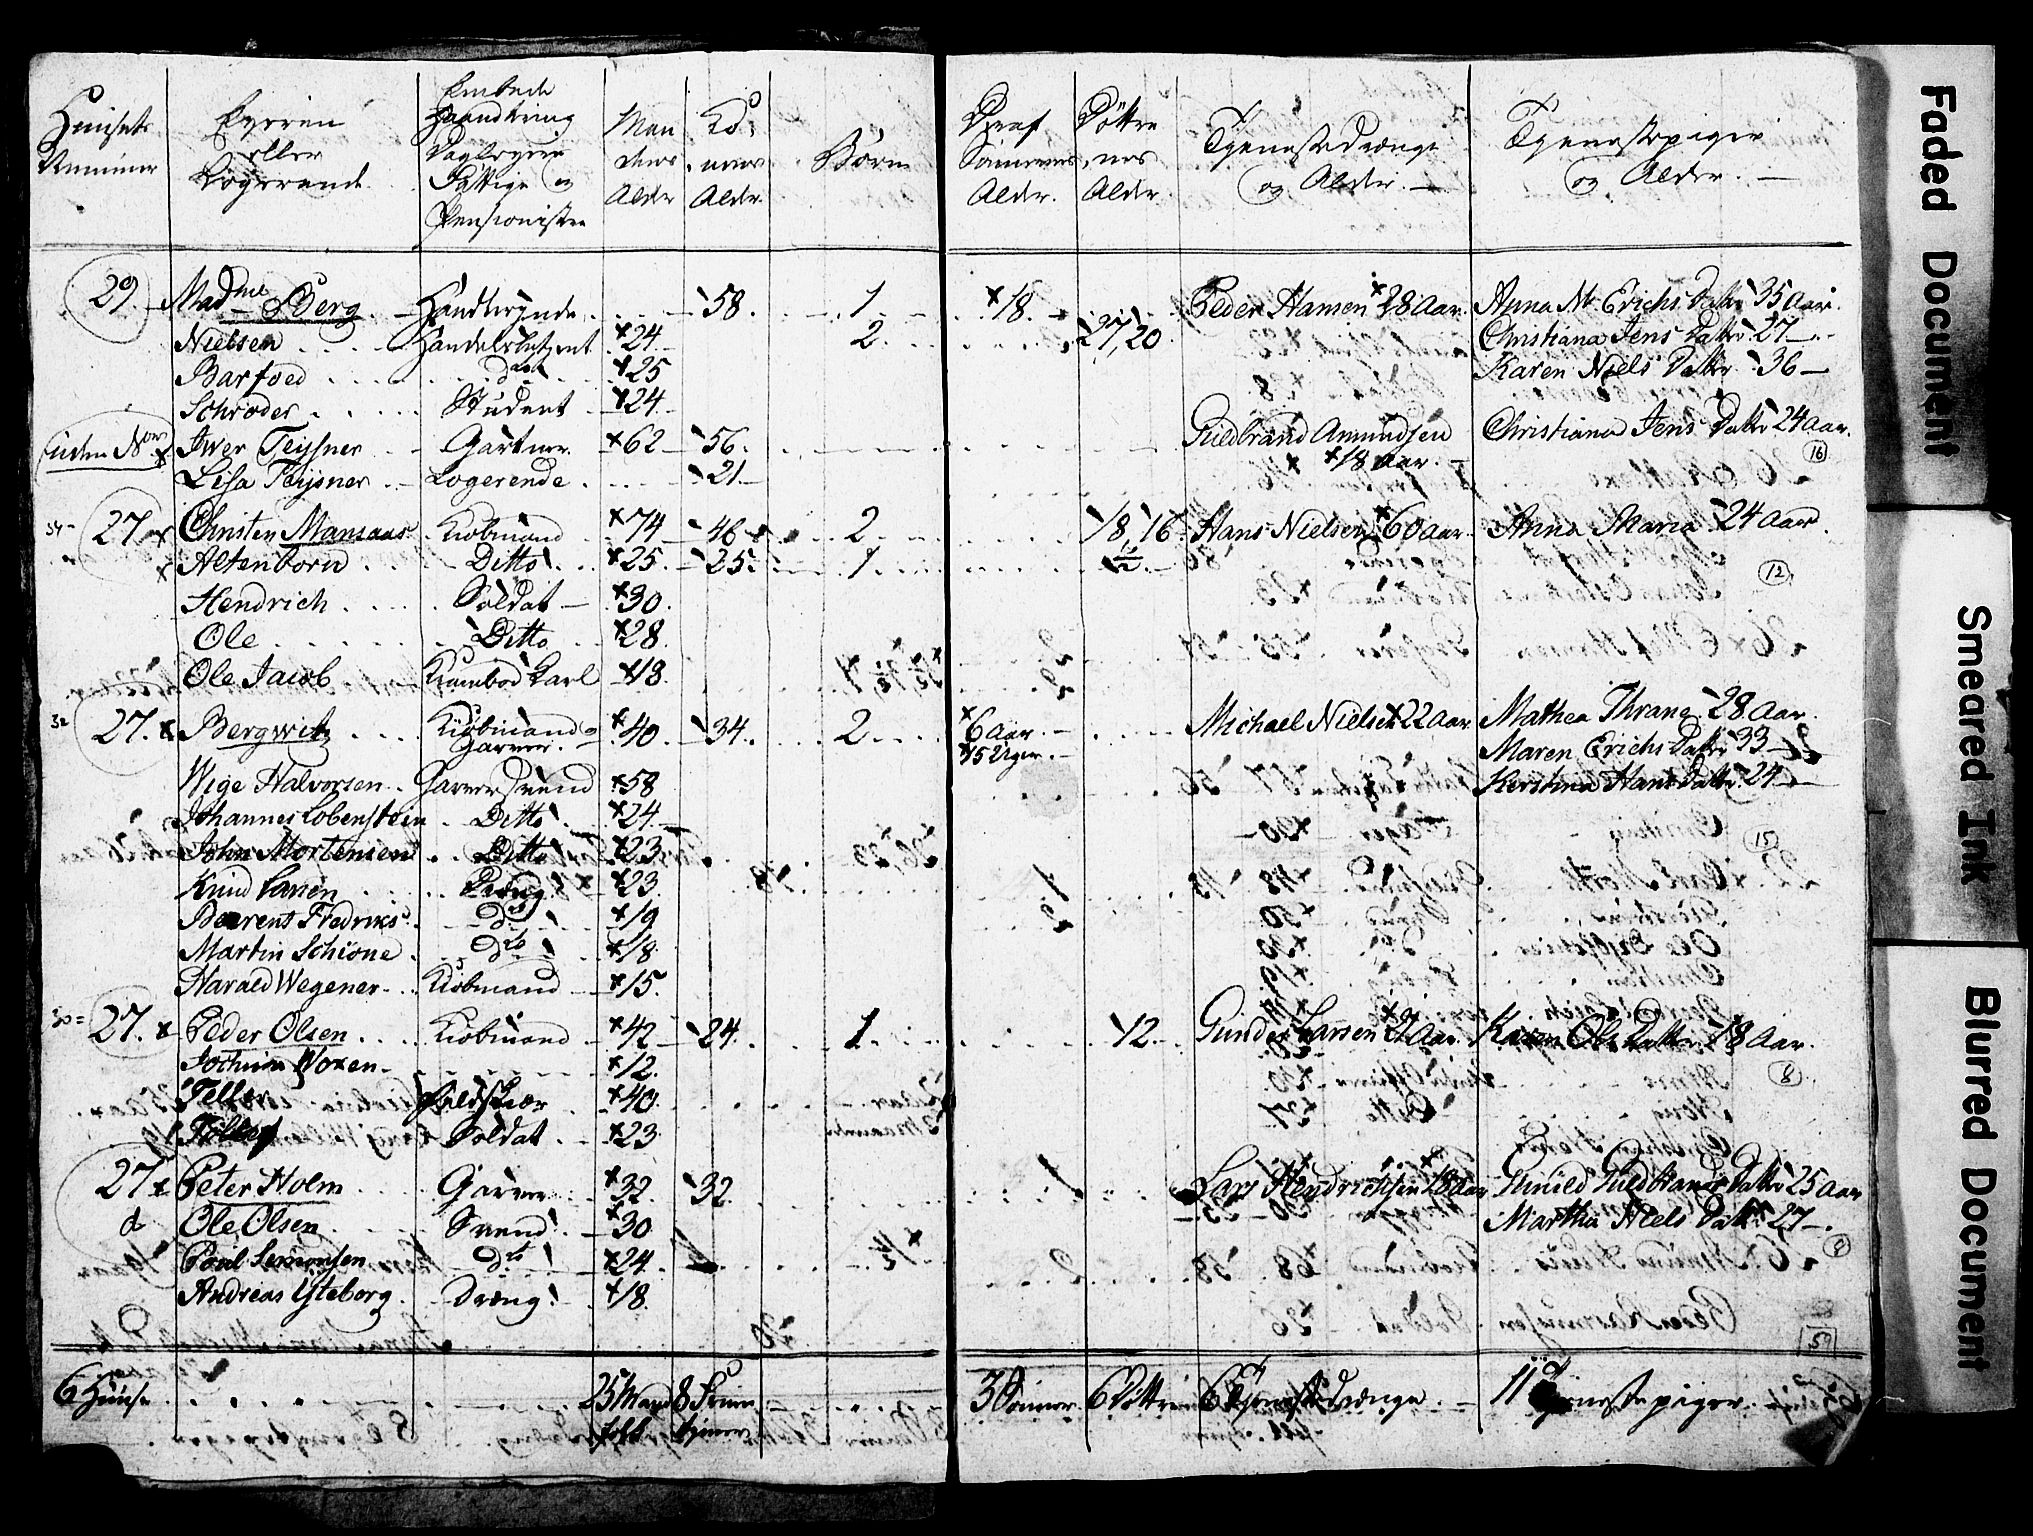 Huusets Nummer
Eyeren eller Logerende
Embede Haandtering Dagleyere Fattige og Pensionister
Mændenes Alder
Ko:nernes Alder
Børn
Deraf Sönnernes Alder.
Döttrenes Alder
Tjenestedrænge og Alder. —
Tjenestepiger og Alder. —
29. Madme Berg. Handlerinde 58. 1 18. Peder Hansen 28 Aar. Anna M. Erichs Datter 35 Aar.
Nielsen Handelsbetient 24 2. 27, 20. Christiana Jens Datter 27
Barfoed do 25 Karen Niels Datter 36
Schrøder Student 24
uden No Iwer Teisner Gartner 62 56. Guldbrand Amundsen Christiana Jens Datter 24 Aar.
18 Aar. 16
Lisa Teisner Logerende 21
27. Christen Mansaas Kiöbmand 74 46 2. 18, 16 Hans Nielsen 60 Aar. Anna Maria 24 Aar.
Altenborn Ditto 25 25. 1. 1/2 12
Hendrich Soldat 30.
Ole Ditto 28
Ole Jacob Krambod Karl 18.
32 27. Bergwitz Kiöbmand og Garver. 40 34. 2. 6 Aar. Michael Nielsen 22 Aar. Mathea Thrane 28 Aar.
15 Uger. Maren Erichs Datter 33
Wige Halvorsen Garversvend 58 Kerstina Hans Datter 24
Johannes Lobenstein Ditto 24
John Mortensen Ditto 23 15
Knud Larsen Dreng 23
Beerent Fredriks. do 19
Martin Schiöne do 18
Harald Wegener Kiöbmand 15.
30 27. Peder Olsen Kiöbmand 42 24. 1. 12. Gunder Larsen 21 Aar. Karen Ols Datter 18 Aar.
Jochum Woxen 12. 8
Feldskiær 40
Soldat 23
27 Peter Holm Garver 32 32. Lars Hendrichsen 18 Aar Gunild Guldbrands Datter 25 Aar
d Ole Olsen Svend 30 Martha Niels Datter 27
Poul Semonsen do 24. 8
Andreas Ysteborg. Dreng 18.
59
6 Huuse 25 Mandfolk 8 Qvindekjönnet 3 Sönner 6 Döttre 6 Tjenestedrænge. 11 Tjenestepiger.
Faded Document
Smeared Ink
Blurred Document